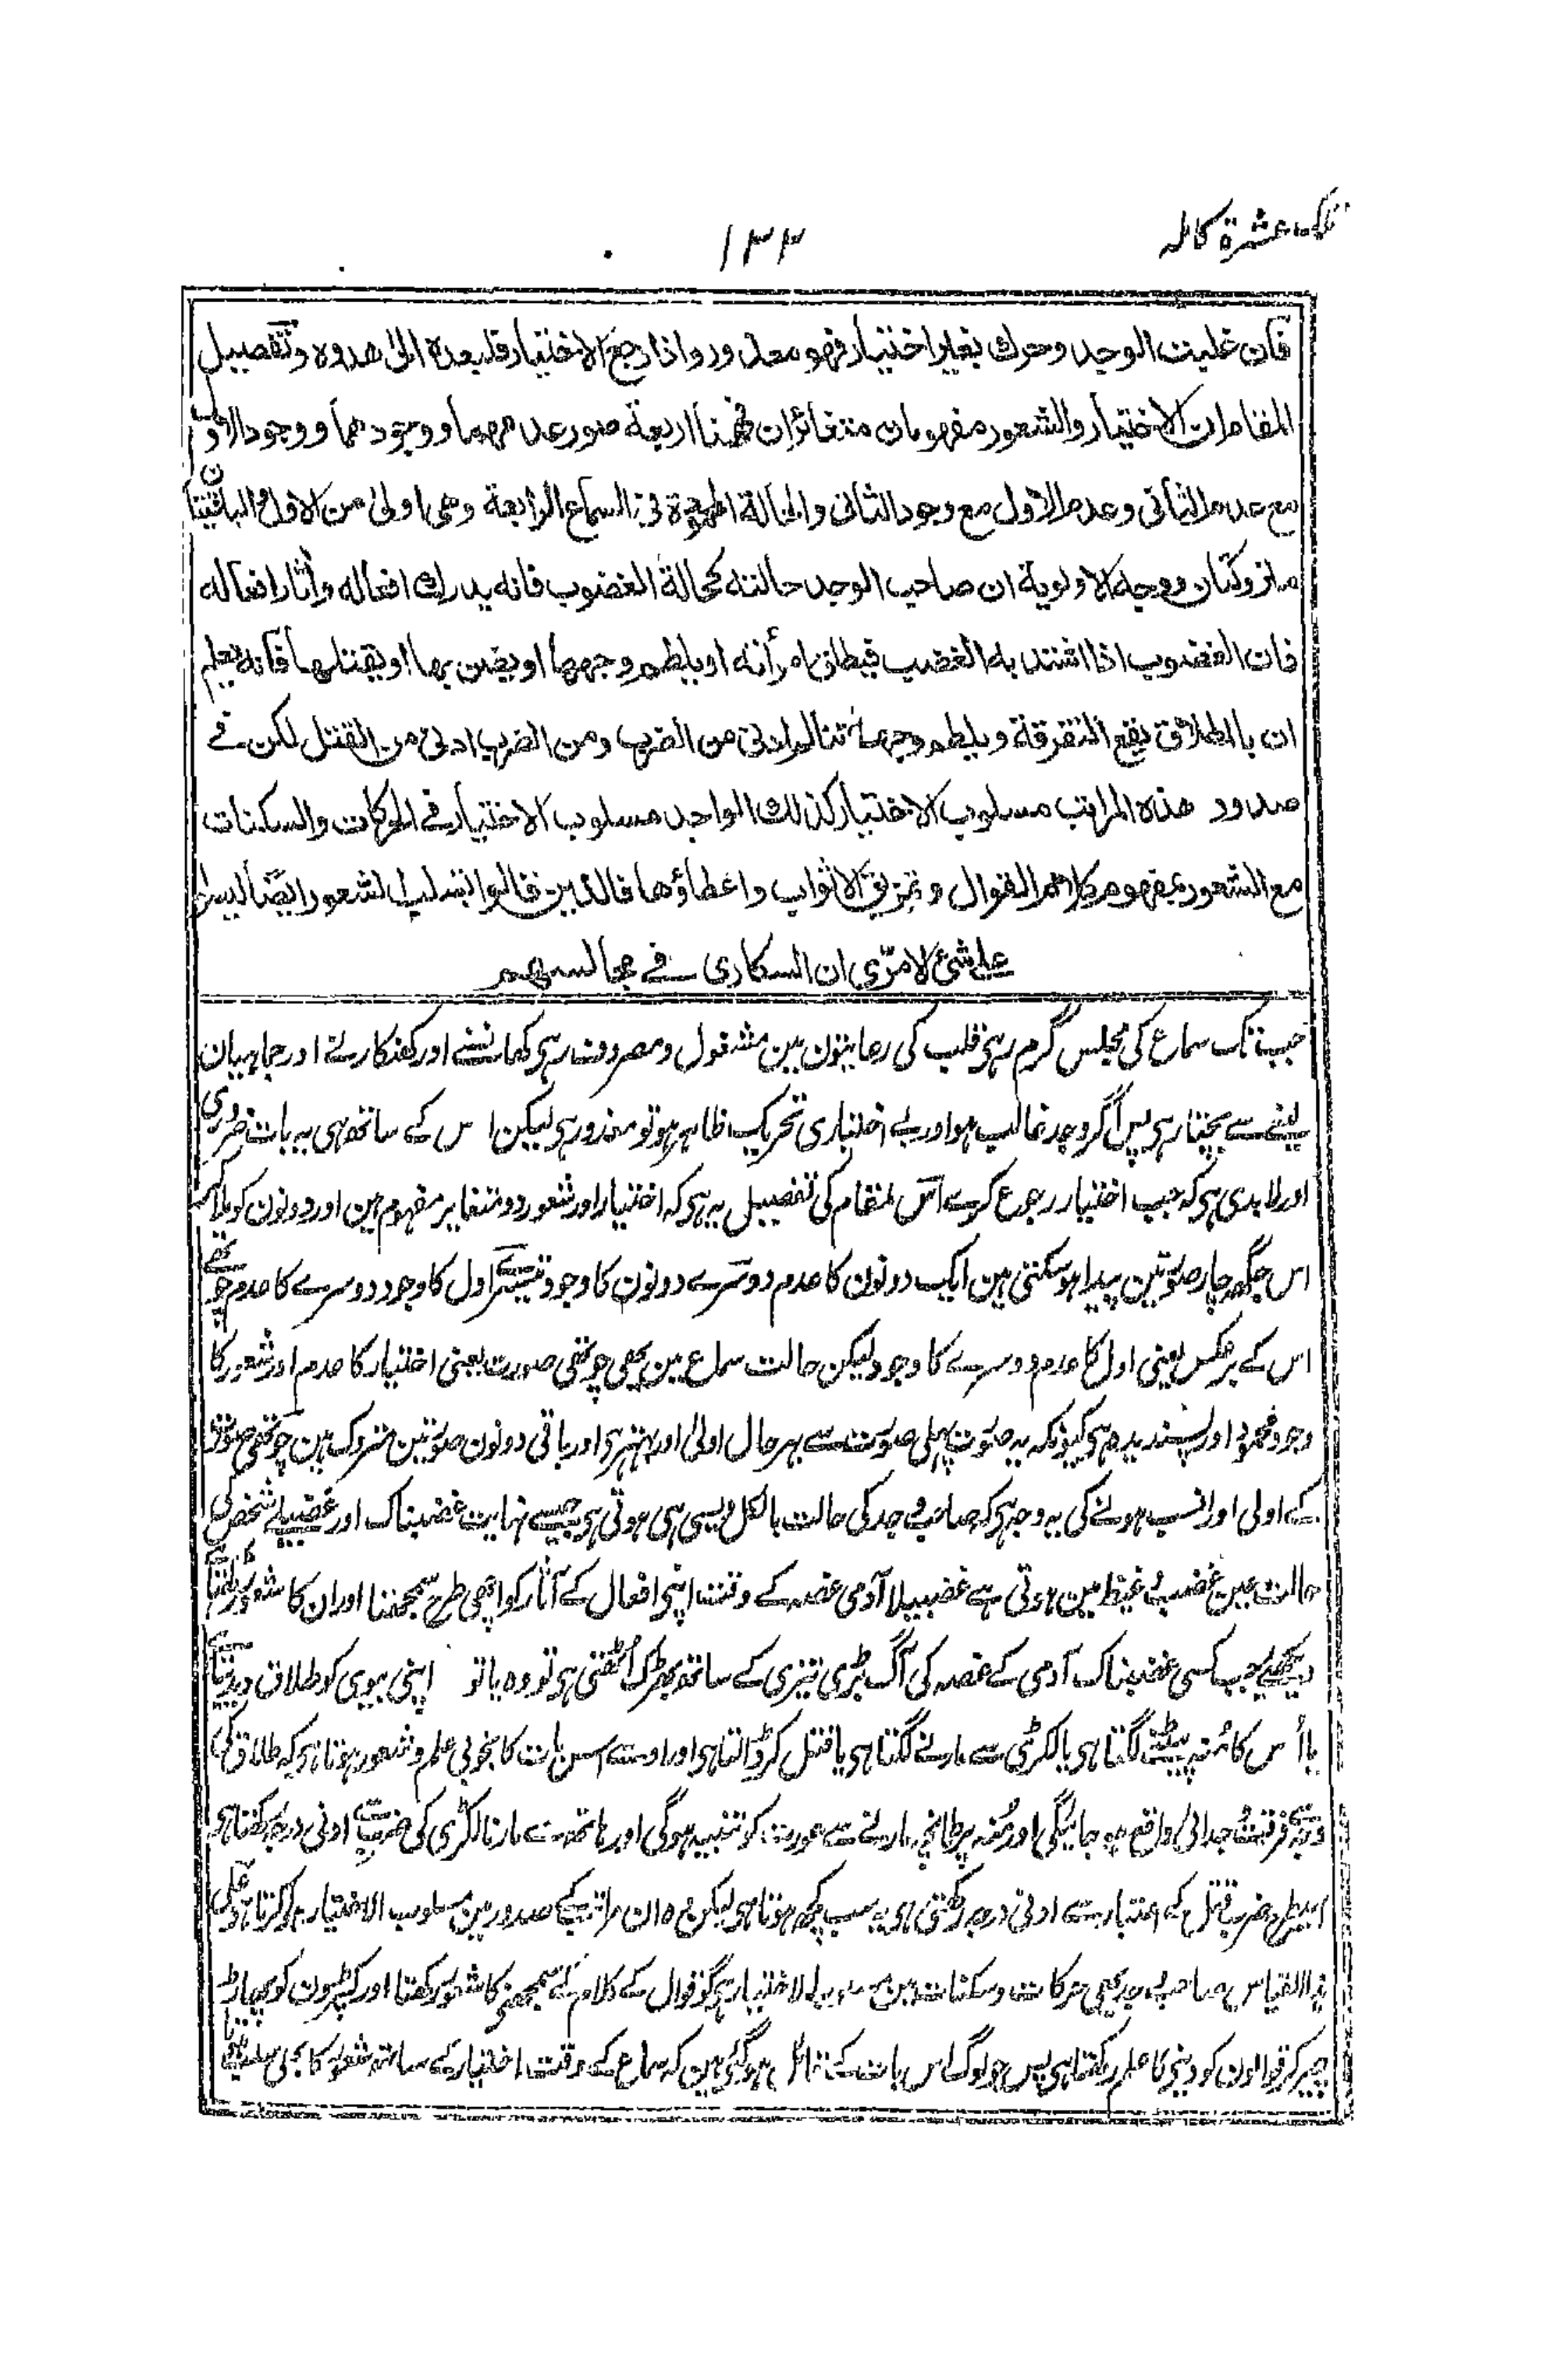 تلک عشرۃ کاملہ
۱۳۳
فان غلبت الوجد وحرك بغير اختيار فهو معذور واذا رجع الاختيار فليعدة الى هدوه وتفصيل
المقام ان الاختيار والشعور مفهومان متغائران فههنا اربعة صور عدمهما ووجودهما ووجود الاول
مع عدم الثانى وعدم الاول مع وجود الثانى والحالة المحمودة فى السماع الرابعة وهى اولى من الاول والباقيتان
متروكتان ووجه الاولوية ان صاحب الوجد حالته كحالة الغضوب فانه يدرك افعاله وآثار افعاله
فان الغضوب اذا اشتد به الغضب فيطلق امرأته او يلطم وجهها او يضربها او يقتلها فانه يعلم
ان بالطلاق يقع التفرقة وبلطم وجهها تتالم ادنى من الضرب ومن الضرب ادنى من القتل لكن فے
صدور هذه المراتب مسلوب الاختيار كذلك الواجد مسلوب الاختيار فے الحركات والسكنات
مع الشعور بمفهوم كلام القوال وتمزيق الاثواب واعطاؤها فالذين قالوا بسلب الشعور ايضا ليسوا
على شئ الا مرّى ان السكارى فے مجالسهم
جب تک سماع کی مجلس گرم رہی قلب کی رعایتون مین مشغول و مصروف رہی کھانسنے اور کھنکارنے اور جماہیان
لینے سے بچتا رہی پس اگر وجد غالب ہو اور بے اختیاری تحریک ظاہر ہو تو معذور ہی لیکن اس کے ساتھ ہی یہ بات ضروری
اور لابدی ہی کہ جب اختیار رجوع کرے اس مقام کی تفصیل یہ ہی کہ اختیار اور شعور دو متغایر مفہوم ہین اور دونون کو ملا کر
اس جگہ چار صورتین پیدا ہو سکتی ہین ایک دونون کا عدم دوسرے دونون کا وجود تیسرے اول کا وجود دوسرے کا عدم چوتھے
اس کے برعکس یعنی اول کا عدم دوسرے کا وجود لیکن حالت سماع مین یہی چوتھی صورت یعنی اختیار کا عدم اور شعور کا
وجود محمود اور پسندیدہ ہی کیونکہ یہ صورت پہلی صورت سے بہر حال اولیٰ اور بہتر ہی اور باقی دونون صورتین متروک ہین چوتھی صورت
کے اولی اور انسب ہونے کی یہ وجہ ہی کہ صاحب وجد کی حالت بالکل ویسی ہی ہوتی ہی جیسے نہایت غضبناک اور غضبیلے شخص کی
حالت عین غضب و غیظ مین ہوتی ہے غضبیلا آدمی غصہ کے وقت اپنی افعال کے آثار کو اچھی طرح سمجھتا اور ان کا شعور رکھتا
دیکھیے جب کسی غضبناک آدمی کے غصہ کی آگ بڑی تیزی کے ساتھ بھڑک اٹھتی ہی تو وہ یا تو اپنی بیوی کو طلاق دیدیتا
یا اُس کا مُنہ پیٹنے لگتا ہی یا لکڑی سے مارنے لگتا ہی یا قتل کر ڈالتا ہی اور اوسے اس بات کا بخوبی علم و شعور ہوتا ہی کہ طلاق کی
وجہ سے فرقت و جدائی واقع ہو جائیگی اور مُنہ پر طمانچہ مارنے سے عورت کو تنبیہ ہوگی اور ہاتھ سے مارنا لکڑی کی ضرب سے ادنی درجہ رکھتا ہی
اسیطرح ضرب قتل کے اعتبار سے ادنی درجہ رکھتی ہی یہ سب کچھ ہوتا ہی لیکن وہ ان مراتب کے صدور مین مسلوب الاختیار ہوا کرتا ہی وعلی
ہذا القیاس صاحب وجد بھی حرکات و سکنات مین مسلوب الاختیار ہی گو قوال کے کلام کے سمجھنے کا شعور رکھتا اور کپڑون کو پھاڑ
چیر کر قوالون کو دینی کا علم رکھتا ہی پس جو لوگ اس بات کے قائل ہو گئے ہین کہ سماع کے وقت اختیار کے ساتھ شعور کا بھی سلب